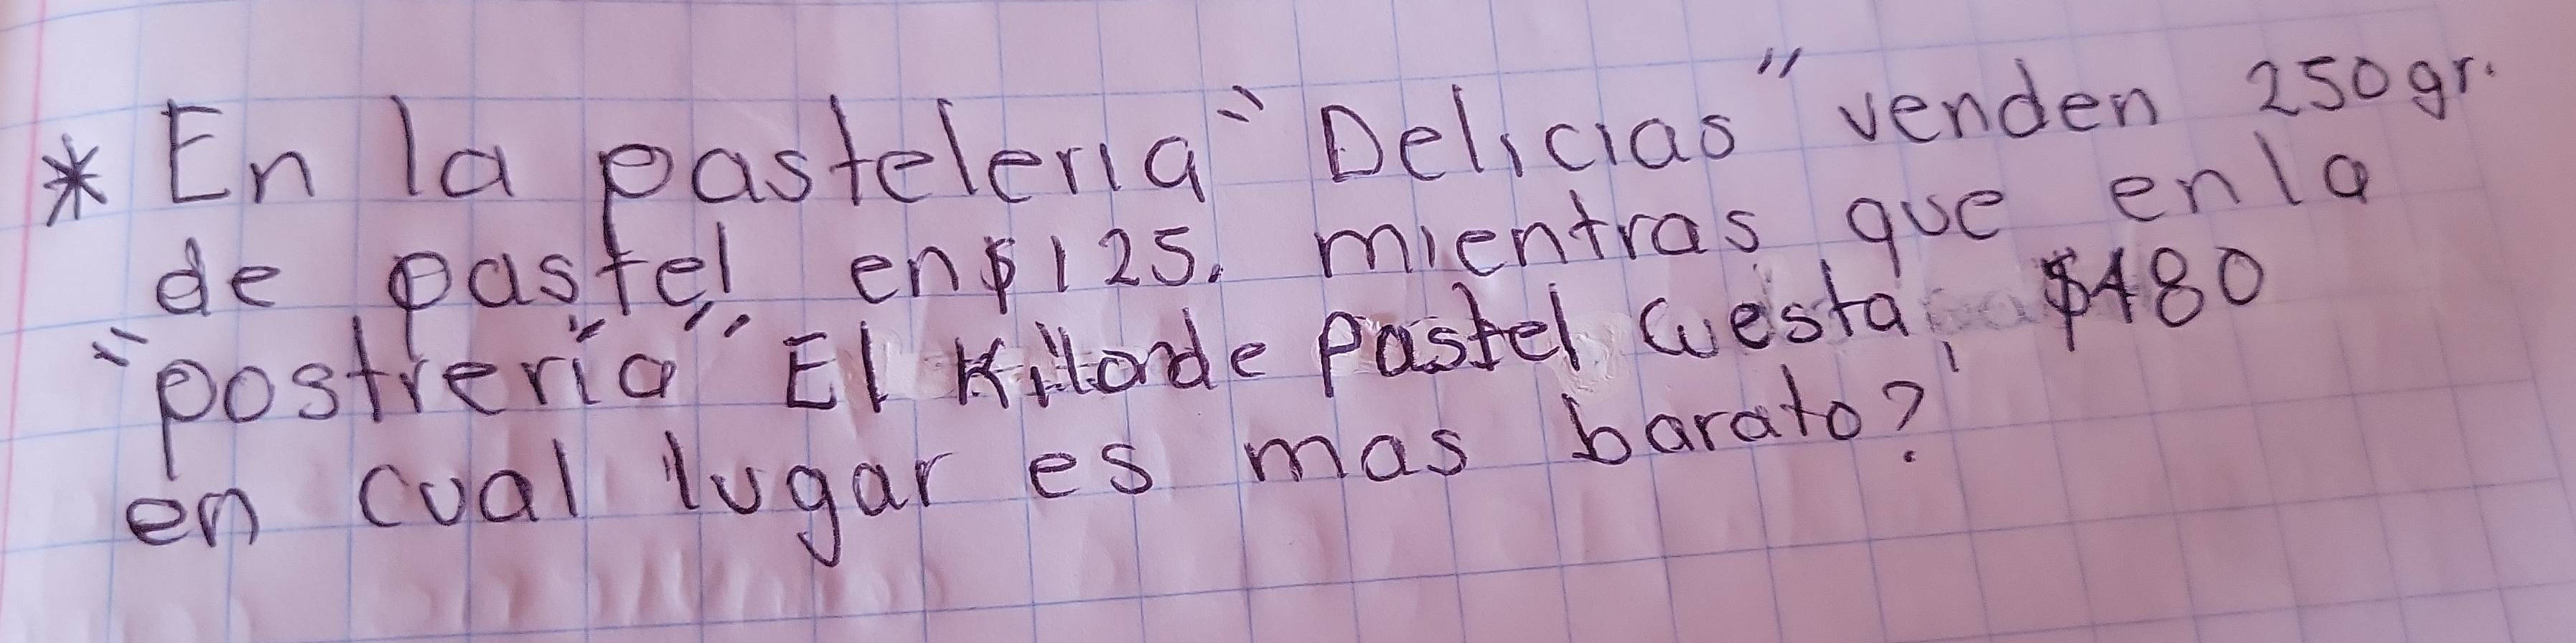 * En la pasteleria "Delicias" venden 250gr.
de pastel en $125. mientras que en la
"postrería" El Kilo de Pastel cuesta $480
en cual lugar es mas barato?